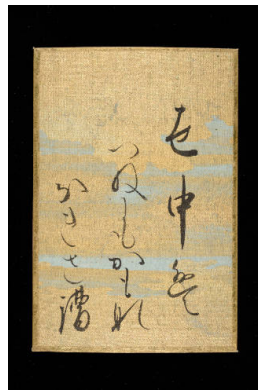 世中は
つねにもかもな
なきさ漕